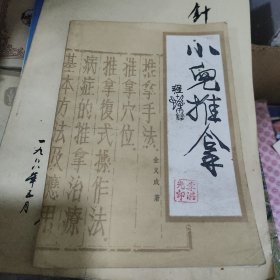 针
小儿推拿
推拿手法.
推拿穴位.
推拿复式操作法.
病症的推拿治疗
基本方法及应用
金义成 著
一九八八年三月